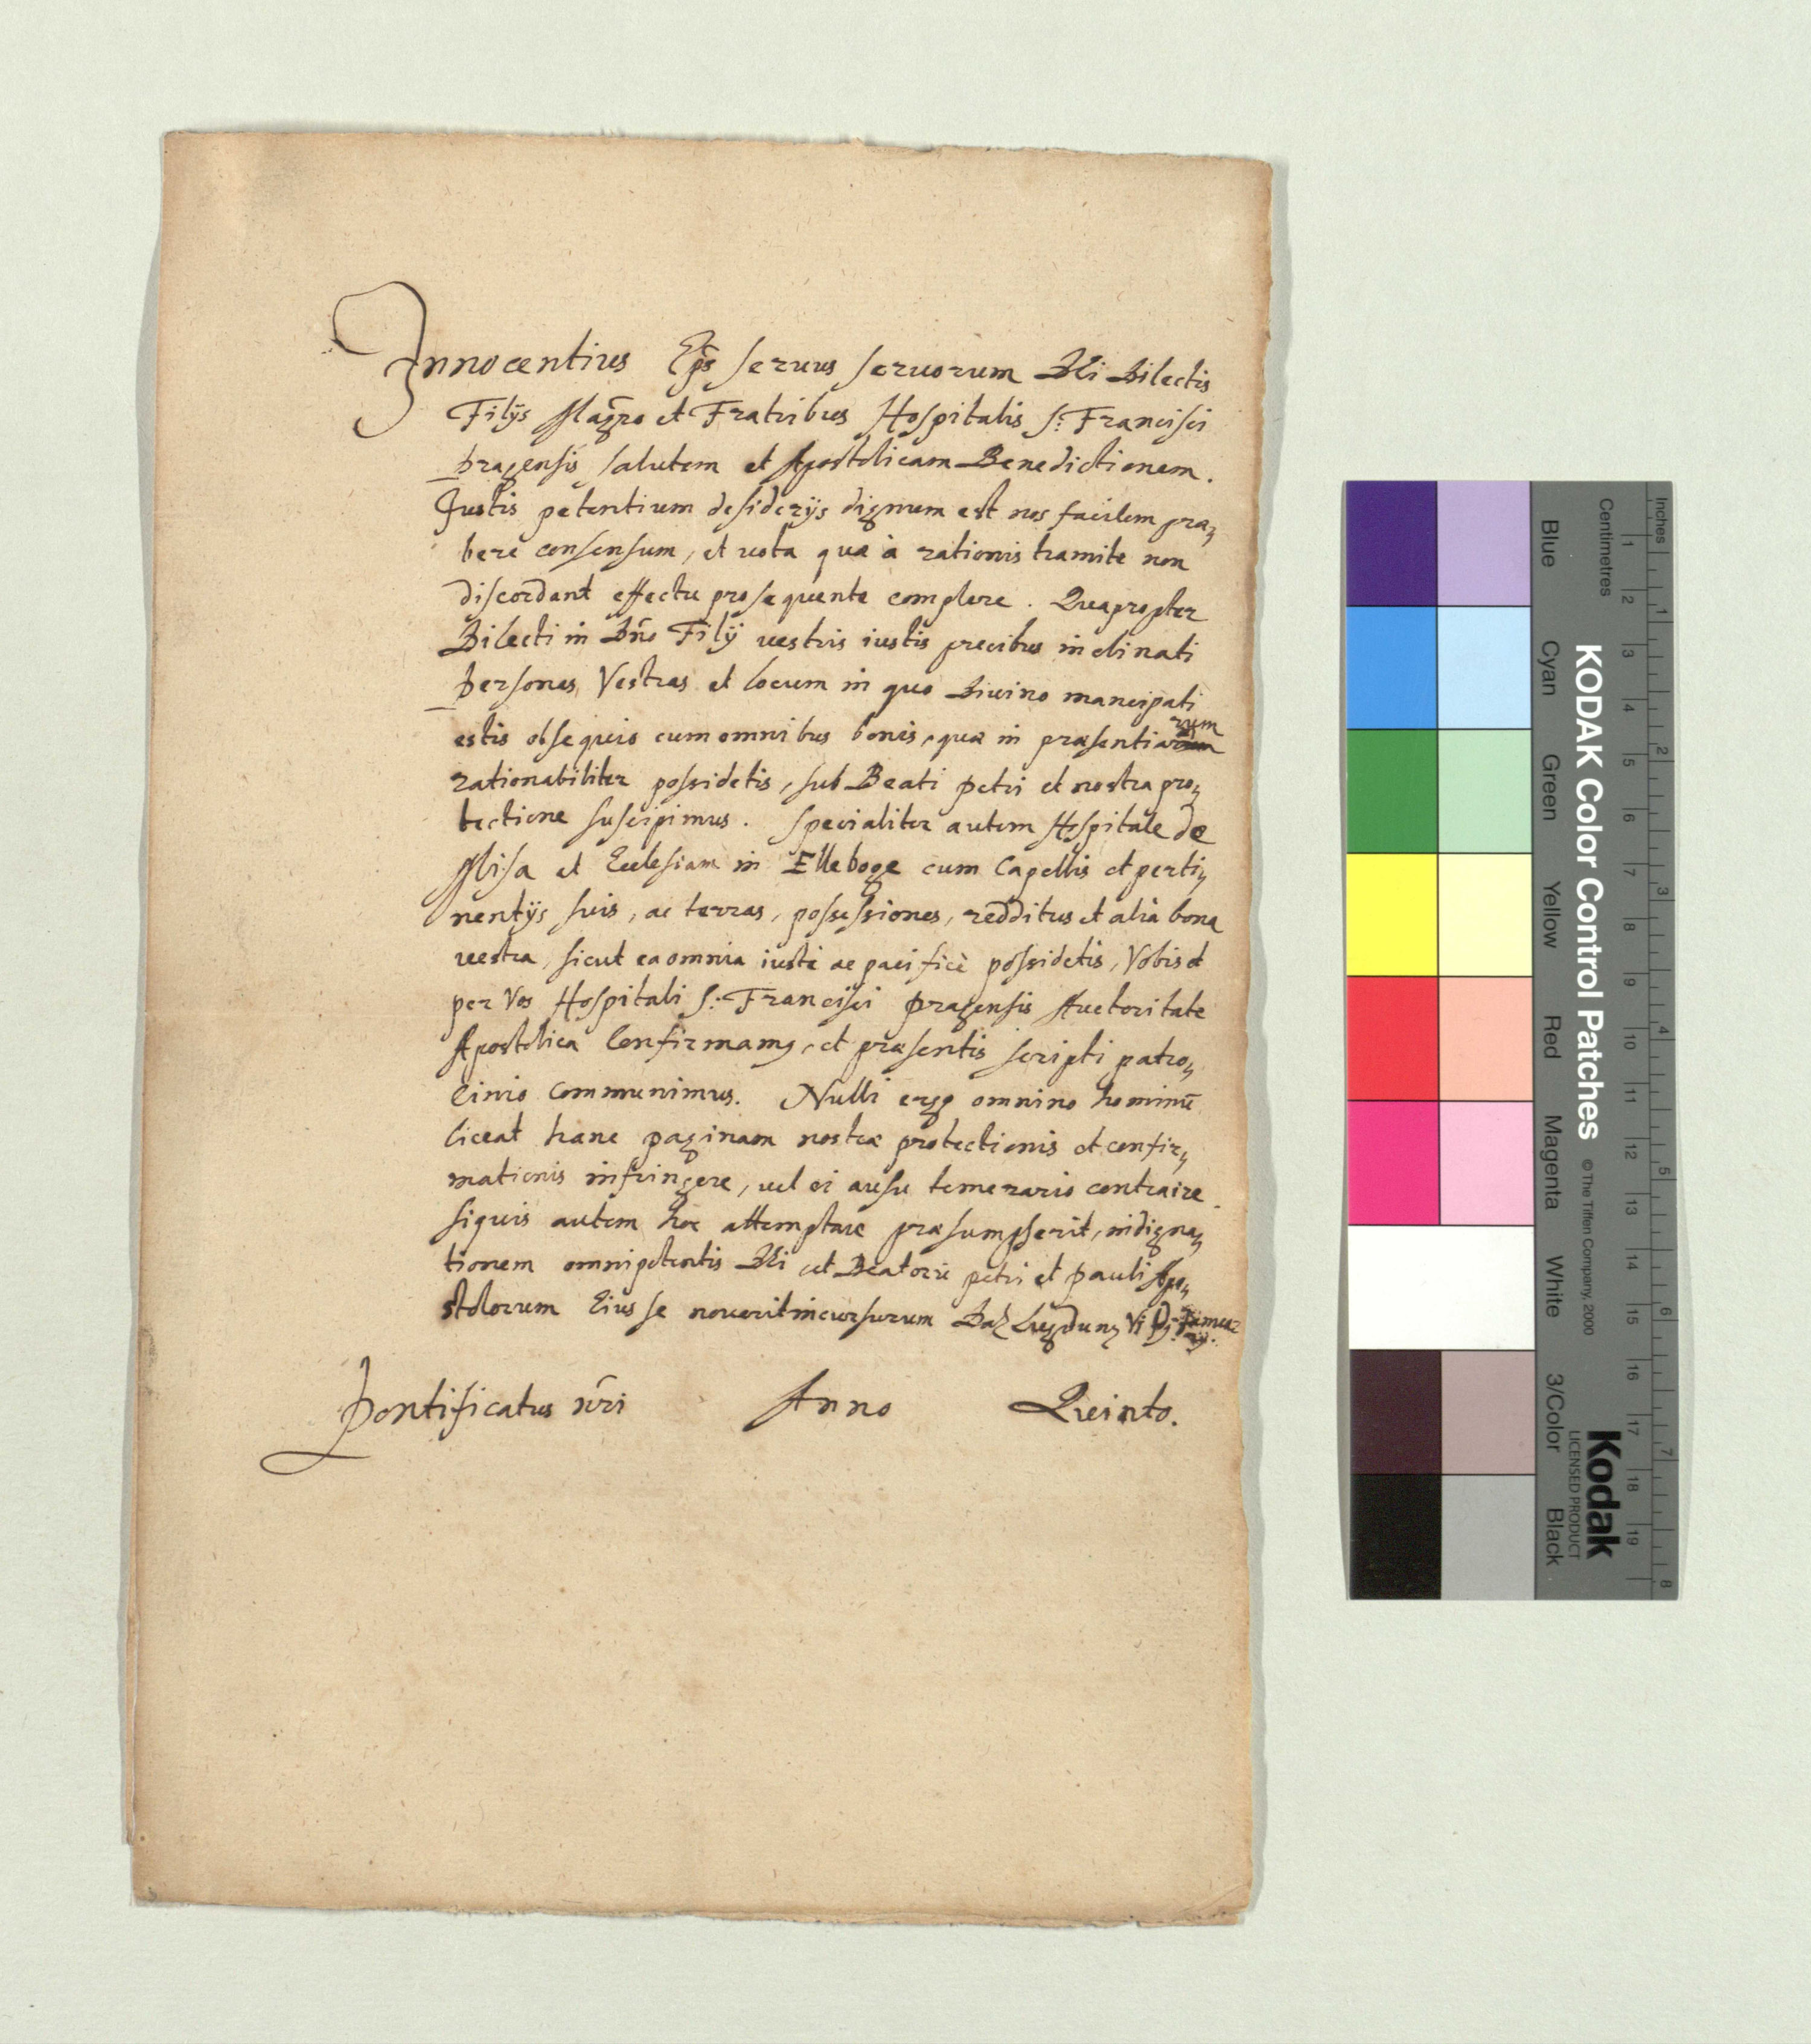 Innocentius Eps seruus seruorum Dei Dilectis
Filijs Magro et Fratribus Hospitalis S: Francisci
Pragensis salutem et Apostolicam Benedictionem.
Justis petentium desiderijs dignum est nos facilem præ,
bere consensum, et uota quæ à rationis tramite non
discordant effectu prosequente complere. Quapropter
Dilecti in Dno Filij uestris iustis precibus inclinati
Personas Vestras et locum in quo Diuino mancipati
estis obsequio cum omnibus bonis, quæ in præsentiarum
rationabiliter possidetis, sub Beati Petri et nostra pro,
tectione suscipimus. Specialiter autem Hospitale de
Misa et Ecclesiam in Elleboge cum Capellis et perti,
nentijs suis, ac terras, possessiones, redditus et alia bona
uestra, sicut ea omnia iustè ac pacificè possidetis, Vobis et
per Vos Hospitali S: Francisci Pragensis Auctoritate
Apostolica Confirmamus, et præsentis scripti patro,
cinio communimus. Nulli ergo omnino hominū
liceat hanc paginam nostræ protectionis et confir,
mationis infringere, uel ei ausu temerario contraire.
siquis autem hoc attemptare præsumpserit, indigna,
tionem omnipotentis Dei et Beatorū Petri et Pauli Apo,
stolorum Eius se nouerit incursurum Dat Lugduni Vi
Pontificatus nri Anno Quinto.
KODAK Color Control Patches
© The Tiffen Company, 2000
Kodak
LICENSED PRODUCT
Inches
Centimetres
Blue Cyan Green Yellow Red Magenta White 3/Color Black
1 2 3 4 5 6 7 8 9 10 11 12 13 14 15 16 17 18 19
1 2 3 4 5 6 7 8